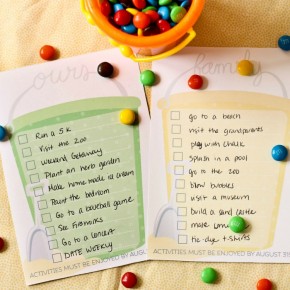 ours
Run a 5K
Visit the zoo
Weekend Getaway
Plant an herb garden
Make home made ice cream
Paint the bedroom
Go to a baseball game
See Fireworks
Go to a concert
DATE WEEKLY
ACTIVITIES MUST BE ENJOYED BY AUGUST 31
family
go to a beach
visit the grandparents
play with chalk
Splash in a pool
go to the zoo
blow bubbles
visit a museum
build a sand castle
make
tie-dye t-shirts
ACTIVITIES MUST BE ENJOYED BY AUGUST 31